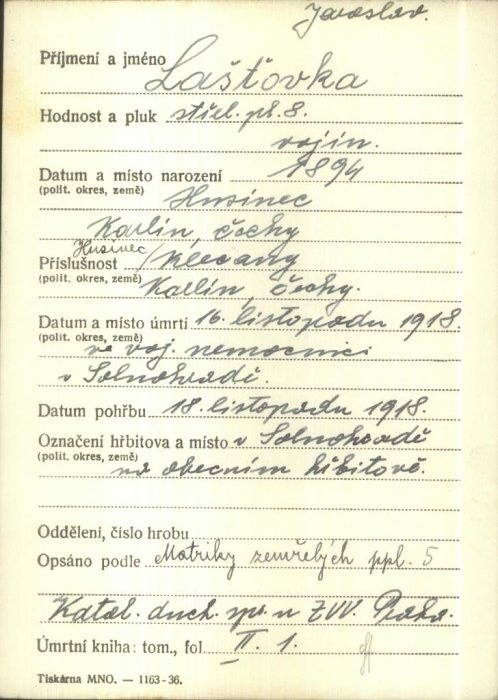 Jaroslav.
Příjmení a jméno Lašťovka
Hodnost a pluk střel. pl. 8.
vojín.
Datum a místo narození 1894
(polit. okres, země) Husinec
Karlín, čechy
Husinec
Příslušnost / Klecany
(polit. okres, země) Karlín, čechy.
Datum a místo úmrtí 16. listopadu 1918.
(polit. okres, země) ve voj. nemocnici
v Solnohradě.
Datum pohřbu 18. listopadu 1918.
Označení hřbitova a místo v Solnohradě
(polit. okres, země) na obecním hřbitově.
Oddělení, číslo hrobu
Opsáno podle Matriky zemřelých ppl. 5
Katol. duch. spr. u ZVV. Praha.
Úmrtní kniha: tom., fol. II. 1.
Tiskárna MNO. — 1163-36.